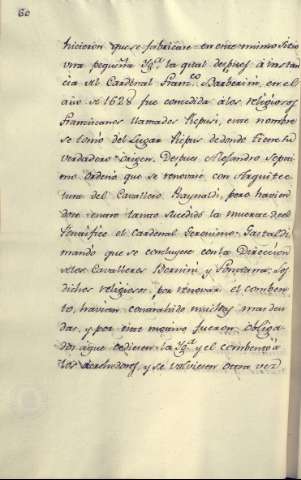 60
hicieron que se fabricàre en este mismo Sitio
una pequeña Ygª. la qual despues à instan
cia del Cardenal Franco. Barberini, en el
año de 1628 fue concedida à los religiosos
Franciscanos llamados Ripusi, este nombre
se tomò del Lugar Ripus de donde tiene su
verdadero origen. Despues Alexandro Septi
mo ordenò que se renovàre con Arquitec
tura del Cavallero Raynaldi, pero havien
dose en tanto sucedido la muerte del
Pontifice el Cardenal Geronimo Gastaldi
mandò que se concluyese con la Direccion
de los Cavalleros Bernini, y Fontana. Los
dichos religiosos, por renovar el comben
to, havian contrahido muchas may deu
das, y por este motivo fueron obliga
dos à que cediesen la Ygª. y el combento à
los acrehedores, y se volvieron otra vez